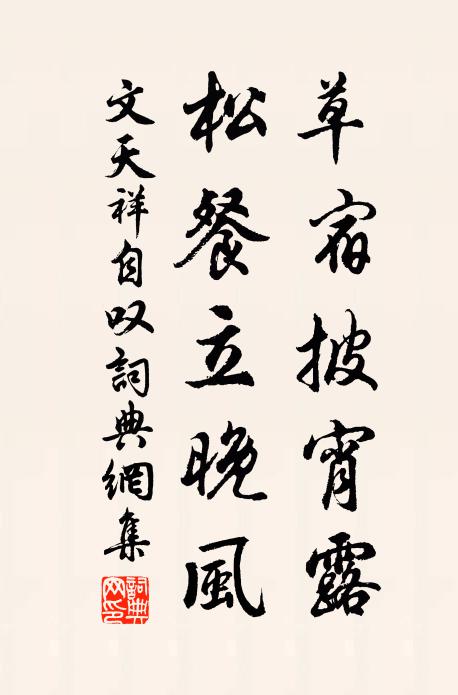 草宿披宵露
松餐立晚風
文天祥自叹詞典網集
詞典
網印